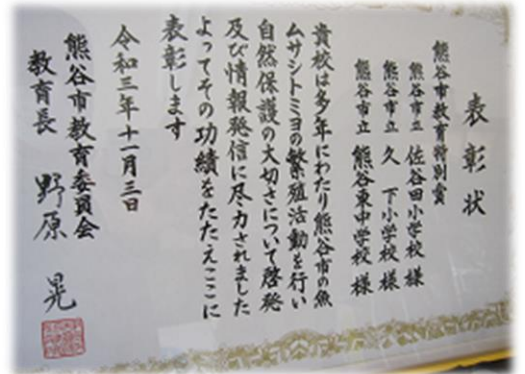 表彰状
熊谷市教育特別賞
熊谷市立 佐谷田小学校 様
熊谷市立 久下小学校 様
熊谷市立 熊谷東中学校 様
貴校は多年にわたり熊谷市の魚
ムサシトミヨの繁殖活動を行い
自然保護の大切さについて啓発
及び情報発信に尽力されました
よってその功績をたたえここに
表彰します
令和三年十一月三日
熊谷市教育委員会
教育長 野原 晃